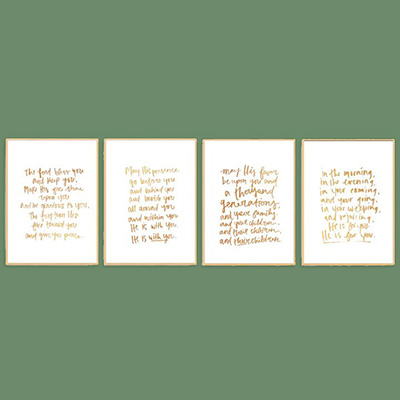 The Lord bless you
and keep you,
Make His face shine
upon you
and be gracious to you,
The Lord turn His
face toward you
and give you peace.
May His presence
go before you
and behind you
and beside you
all around you
and within you
He is with you
He is with you.
may His favor
be upon you and
a thousand
generations
and your family,
and your children,
and their children,
and their children
in the morning,
in the evening,
in your coming,
and your going,
in your weeping,
and rejoicing,
He is for you
He is for you.